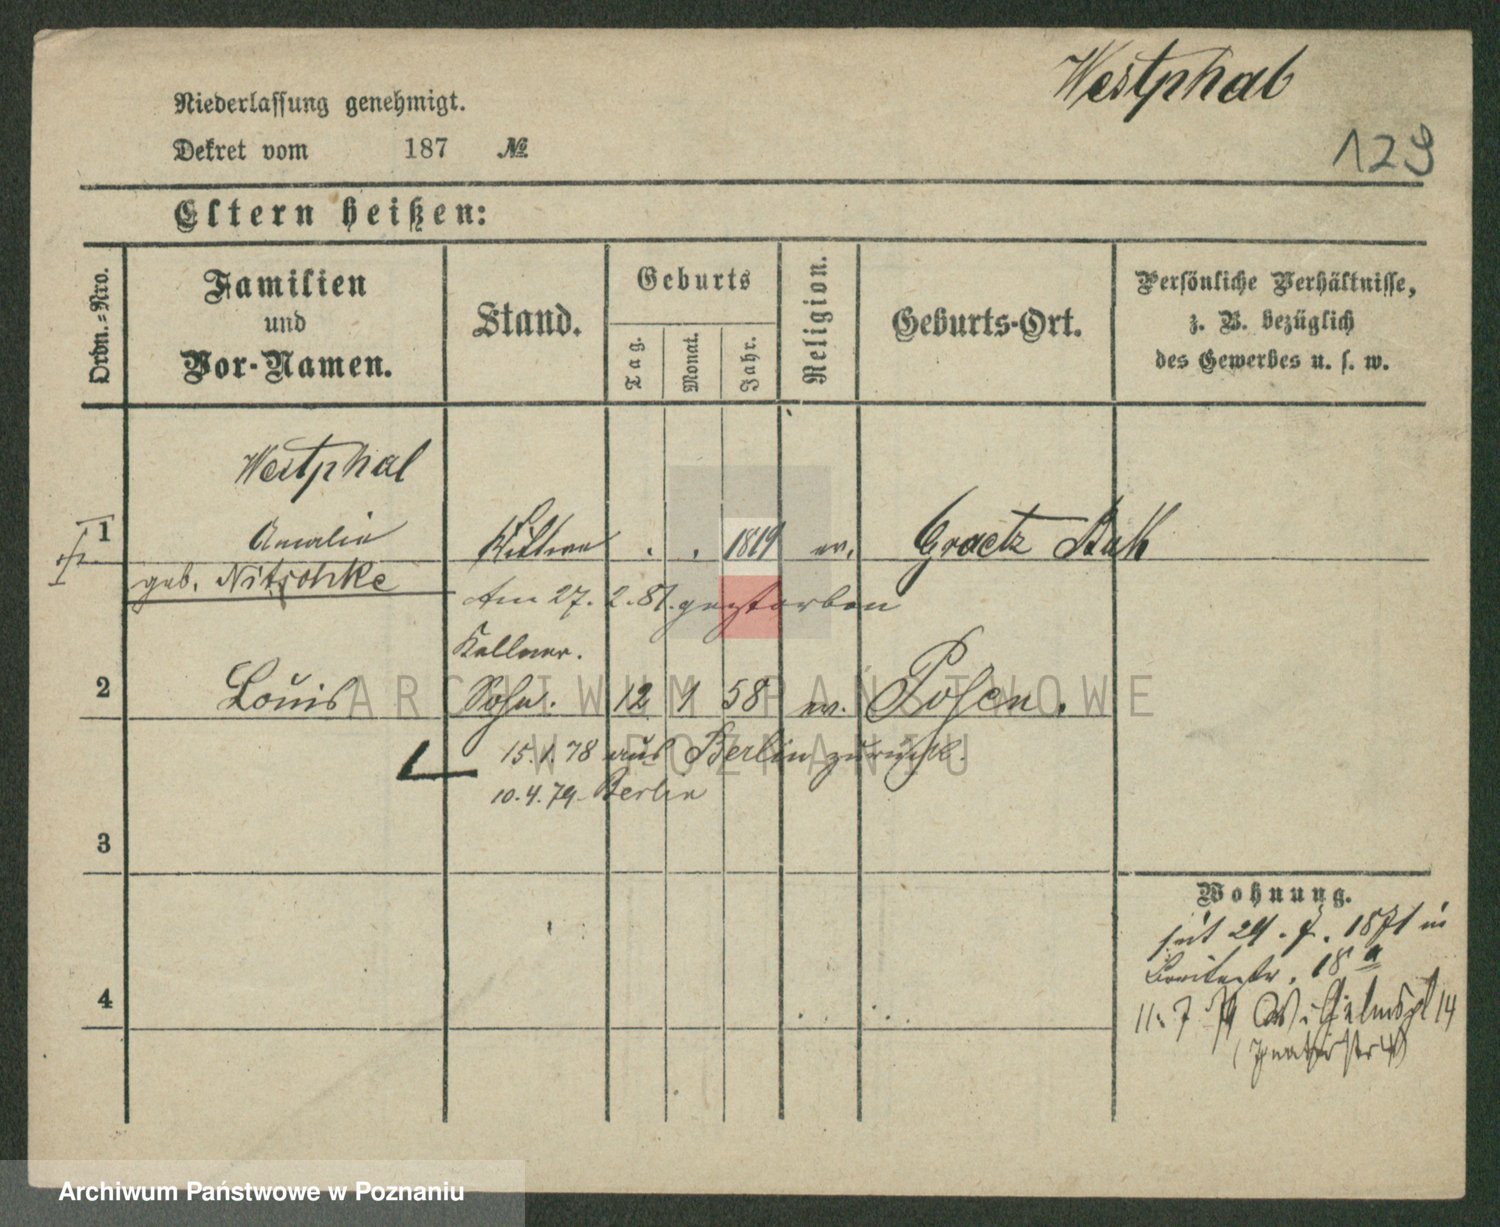 Westphal
129
Niederlassung genehmigt.
Dekret vom 187 №
Eltern heißen:
Ordn.-Nro.
Familien
und
Vor-Namen.
Stand.
Geburts
Tag.
Monat.
Jahr.
Religion.
Geburts-Ort.
Persönliche Verhältnisse,
z. B. bezüglich
des Gewerbes u. s. w.
Westphal
1 Amalie Wittwe . . 1819 ev. Graetz Buk
geb. Nitschke
Am 27. 2. 81. gestorben
Kellner.
2 Louis Sohn. 12 1 58 ev. Posen.
15.1.78 aus Berlin zurück.
10.4.79. Berlin
3
4
Wohnung.
seit 24. 7. 1871 in
18a
11. 7 79 Wilhelmspl 14
ARCHIWUM PAŃSTWOWE
W POZNANIU
Archiwum Państwowe w Poznaniu